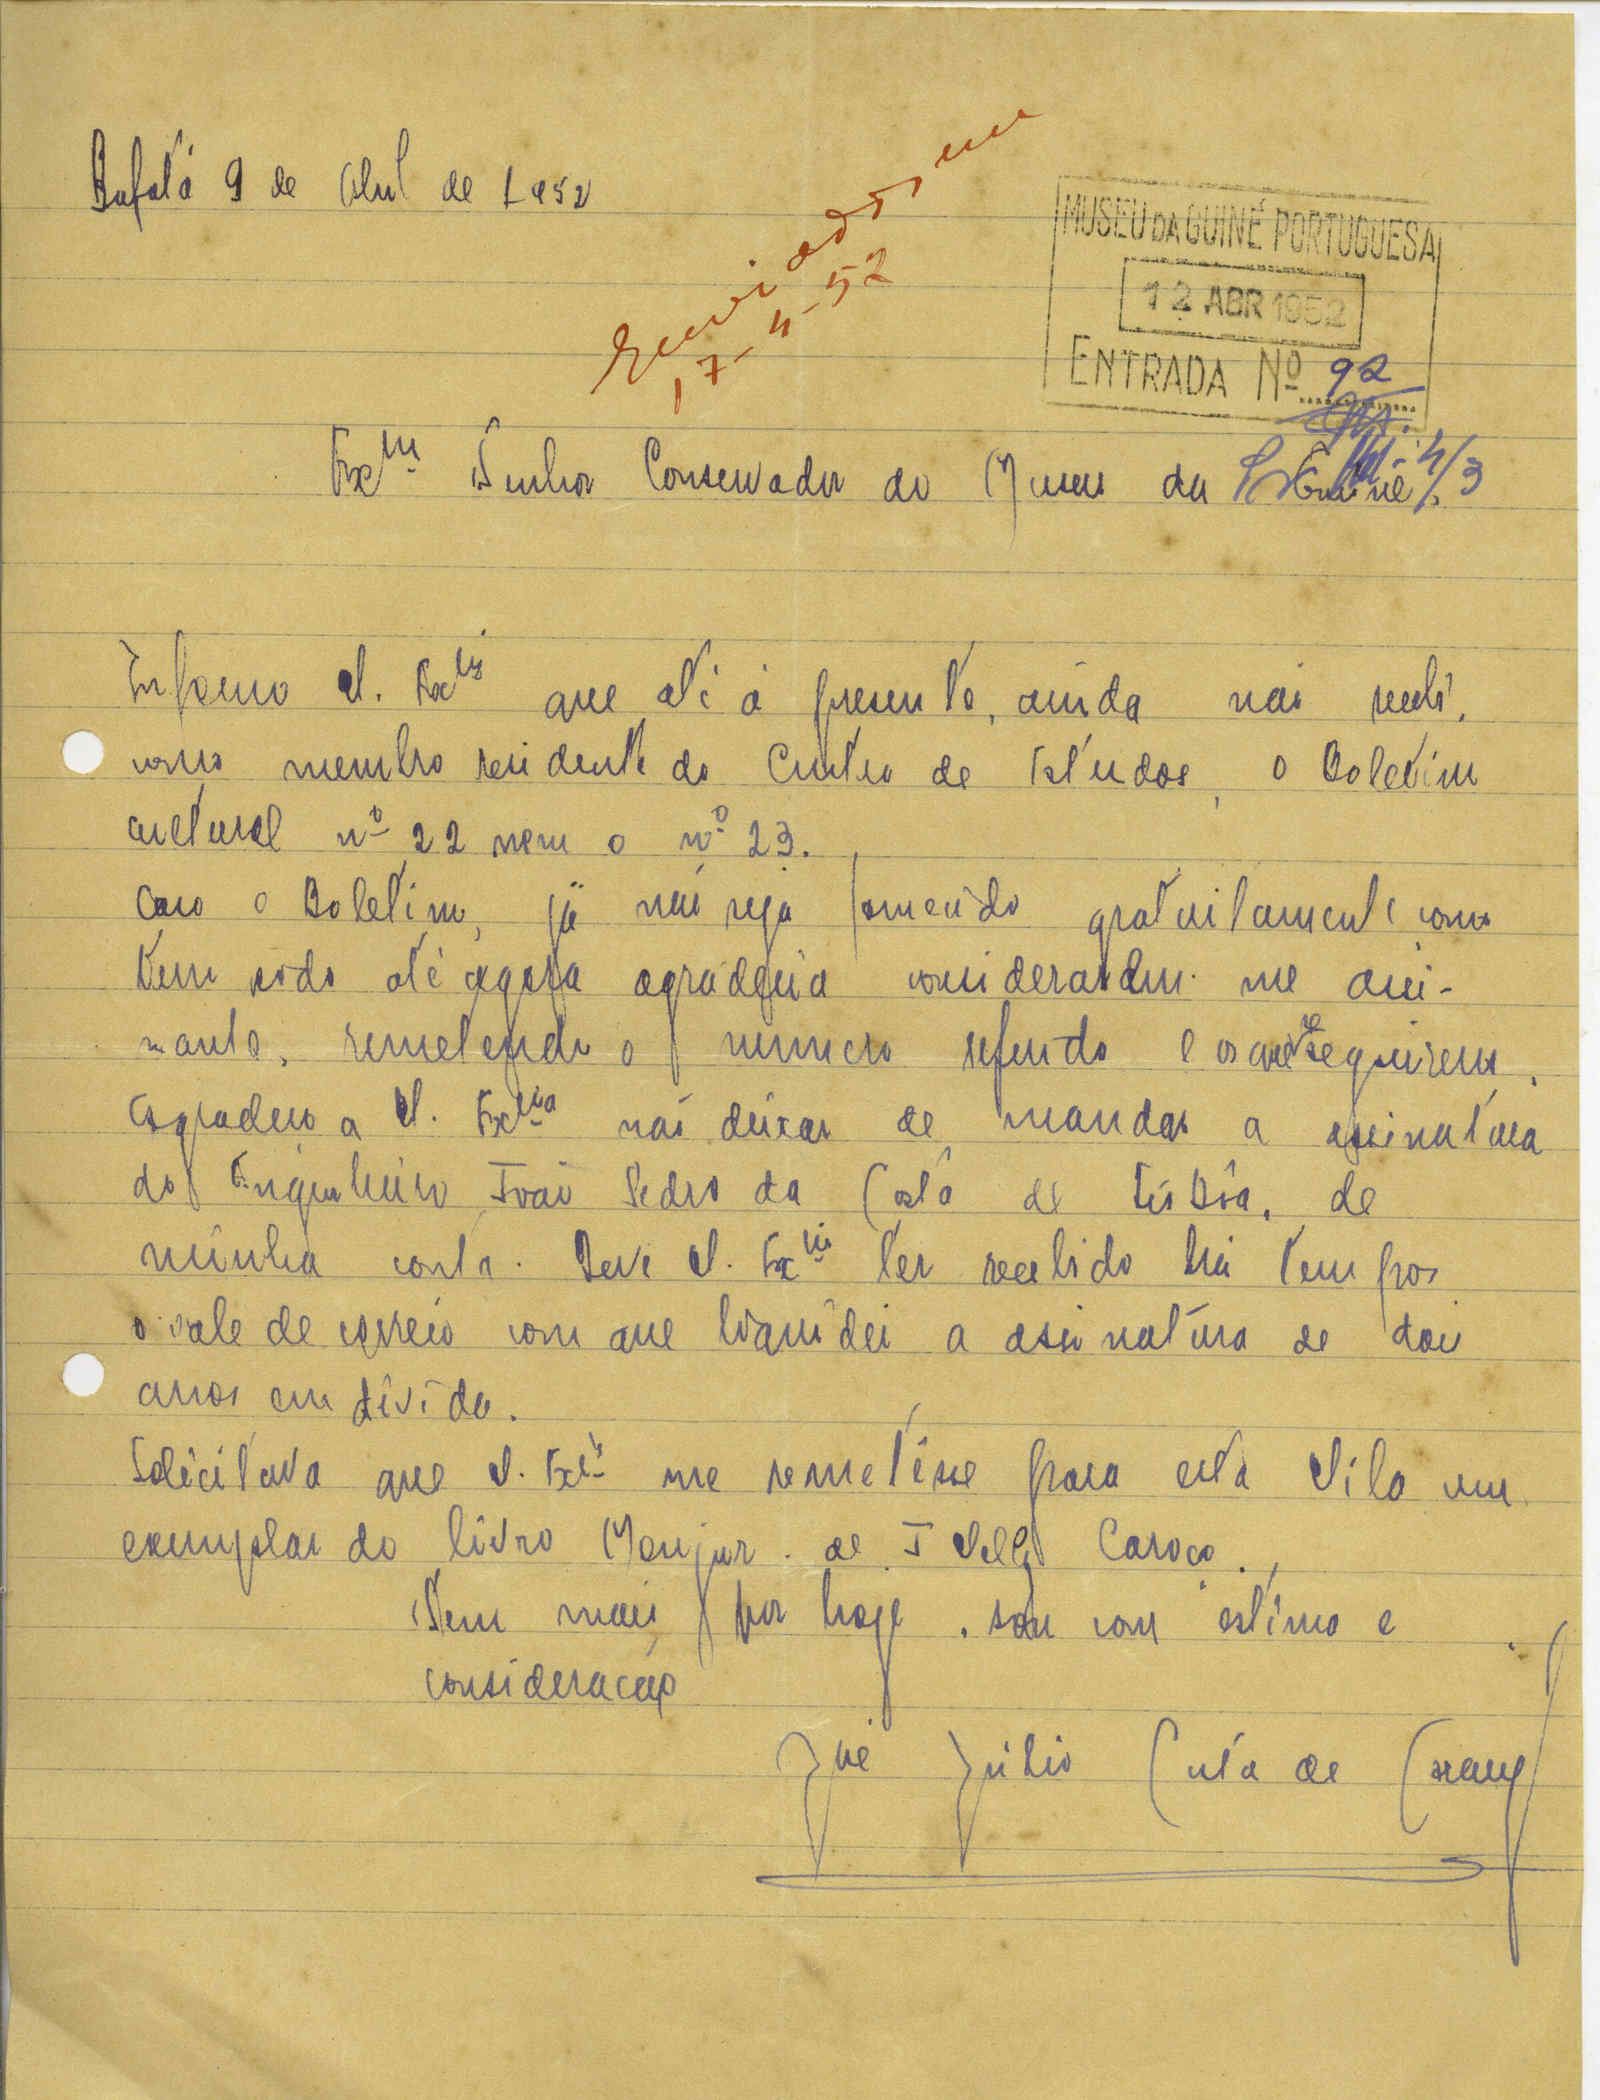 Bafatá 9 de Abril de 1952
Enviados em
17-4-52
MUSEU DA GUINÉ PORTUGUESA
12 ABR 1952
ENTRADA Nº 92
4/3
Exmº Senhor Conservador do Museu da Guiné
Informo V. Exciª que até á presente, ainda não recebi,
como membro residente do Centro de Estudos, o Boletim
cultural nº 22 nem o nº 23.
Caso o Boletim, já não seja fornecido gratuitamente como
tem sido até agora agradecia considerandum-me assi-
nante, remetendo o numero referido e os que se seguirem.
Agradeco a V. Exciª não deixar de mandar a assinatura
do Engenheiro João Pedro da Costa de Lisbôa, de
minha conta. Deve V. Exciª ter recebido há tempos
o vale de correio com que liquidei a assinatura de dois
anos em divida.
Solicitava que V. Exciª me remetêsse para esta Vila um
exemplar do livro Monjur. de J Vellez Caroço.
Sem mais por hoje, sou com estima e
consideração
José Júlio Costa de